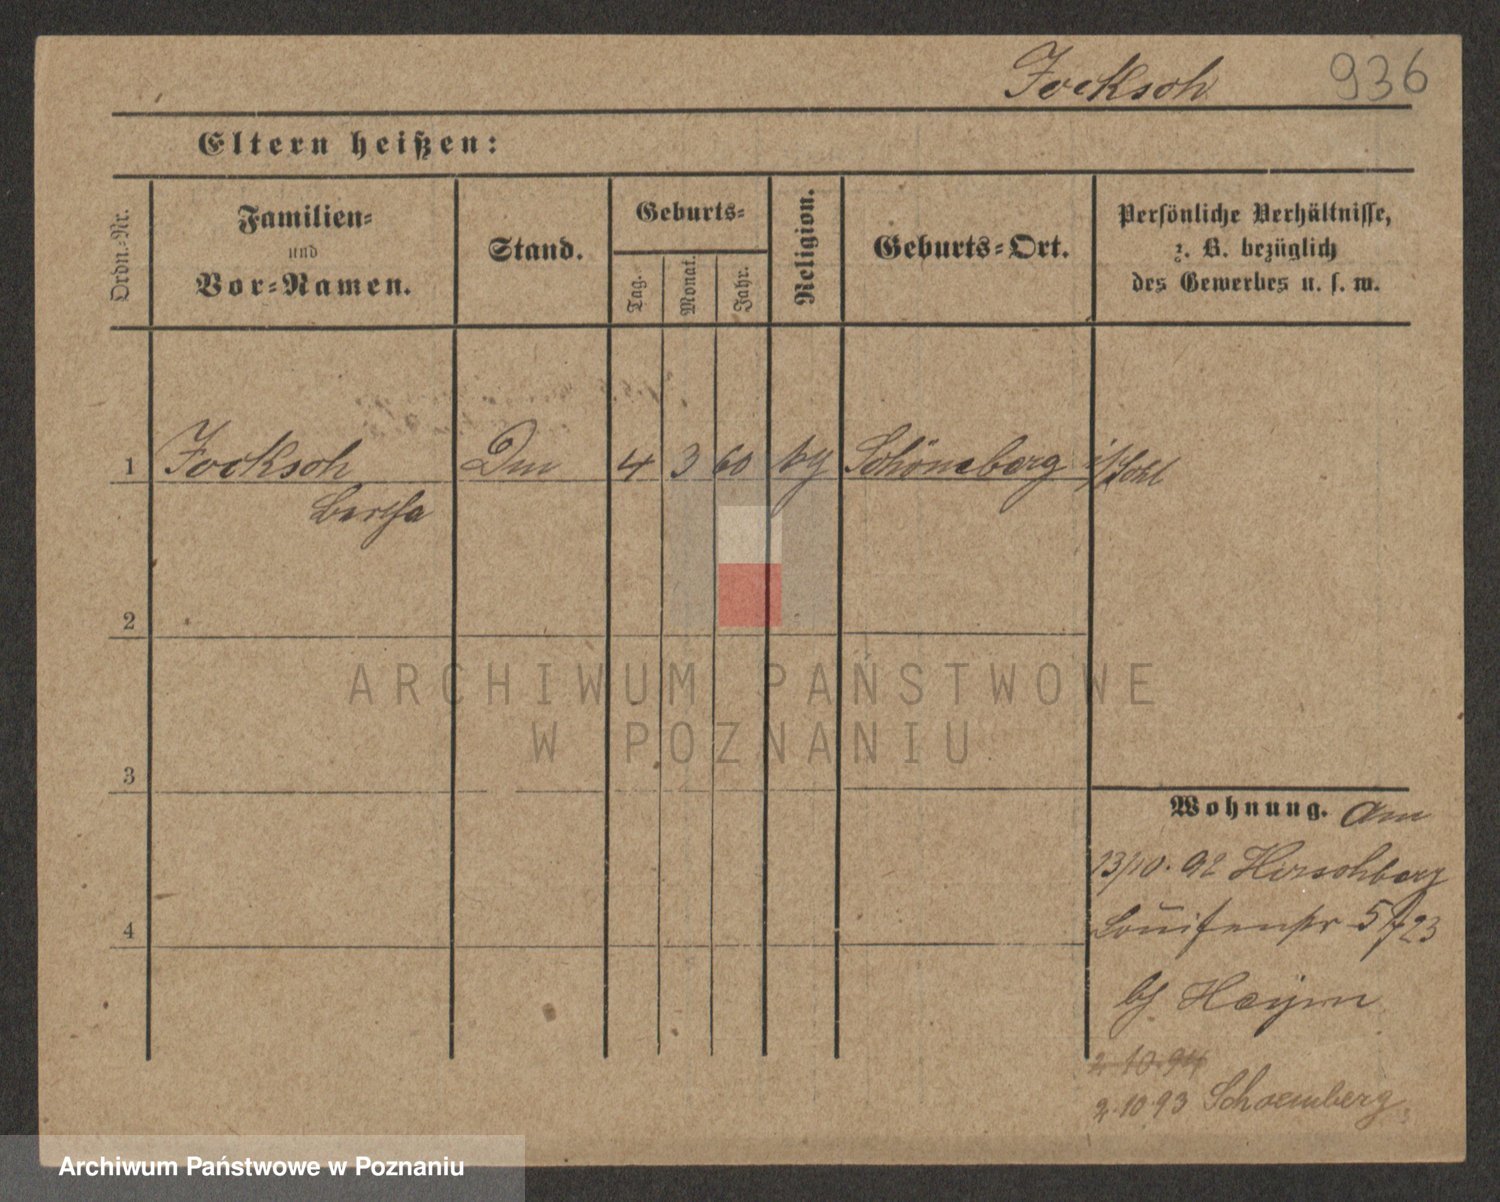 Jocksch 936
Eltern heißen:
Ordn.-Nr.
Familien-
und
Vor-Namen.
Stand.
Geburts-
Tag.
Monat.
Jahr.
Religion.
Geburts-Ort.
Persönliche Verhältnisse,
z. B. bezüglich
des Gewerbes u. s. w.
1 Jocksch 4 3 60 Schöneberg i/Schl
Bertha
2
3
4
Wohnung. am
13/10. 92 Hirschberg
Louisenstr 5/23
bj Heym
2 10.94
2.10 93 Schoemberg.
ARCHIWUM PAŃSTWOWE
W POZNANIU
Archiwum Państwowe w Poznaniu